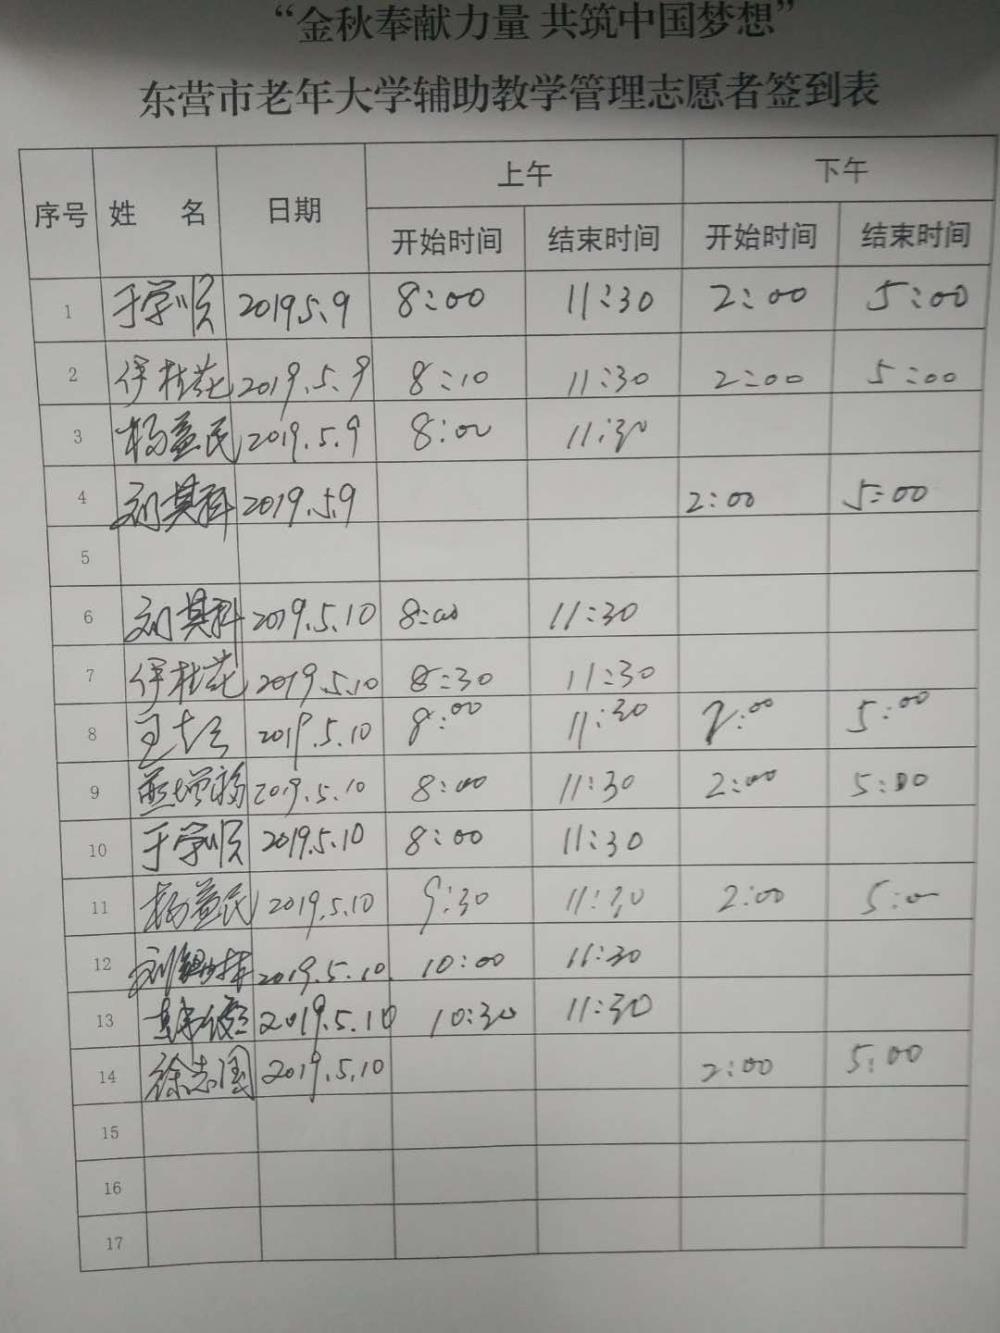 “金秋奉献力量 共筑中国梦想”
东营市老年大学辅助教学管理志愿者签到表
序号 姓 名 日期 上午 下午
开始时间 结束时间 开始时间 结束时间
1 于学顺 2019.5.9 8:00 11:30 2:00 5:00
2 伊桂花 2019.5.9 8:10 11:30 2:00 5:00
3 杨益民 2019.5.9 8:00 11:30
4 刘其科 2019.5.9 2:00 5:00
5
6 刘其科 2019.5.10 8:00 11:30
7 伊桂花 2019.5.10 8:30 11:30
8 2019.5.10 8:00 11:30 2:00 5:00
9 2019.5.10 8:00 11:30 2:00 5:00
10 于学顺 2019.5.10 8:00 11:30
11 杨益民 2019.5.10 9:30 11:30 2:00 5:00
12 2019.5.10 10:00 11:30
13 2019.5.10 10:30 11:30
14 徐志国 2019.5.10 2:00 5:00
15
16
17